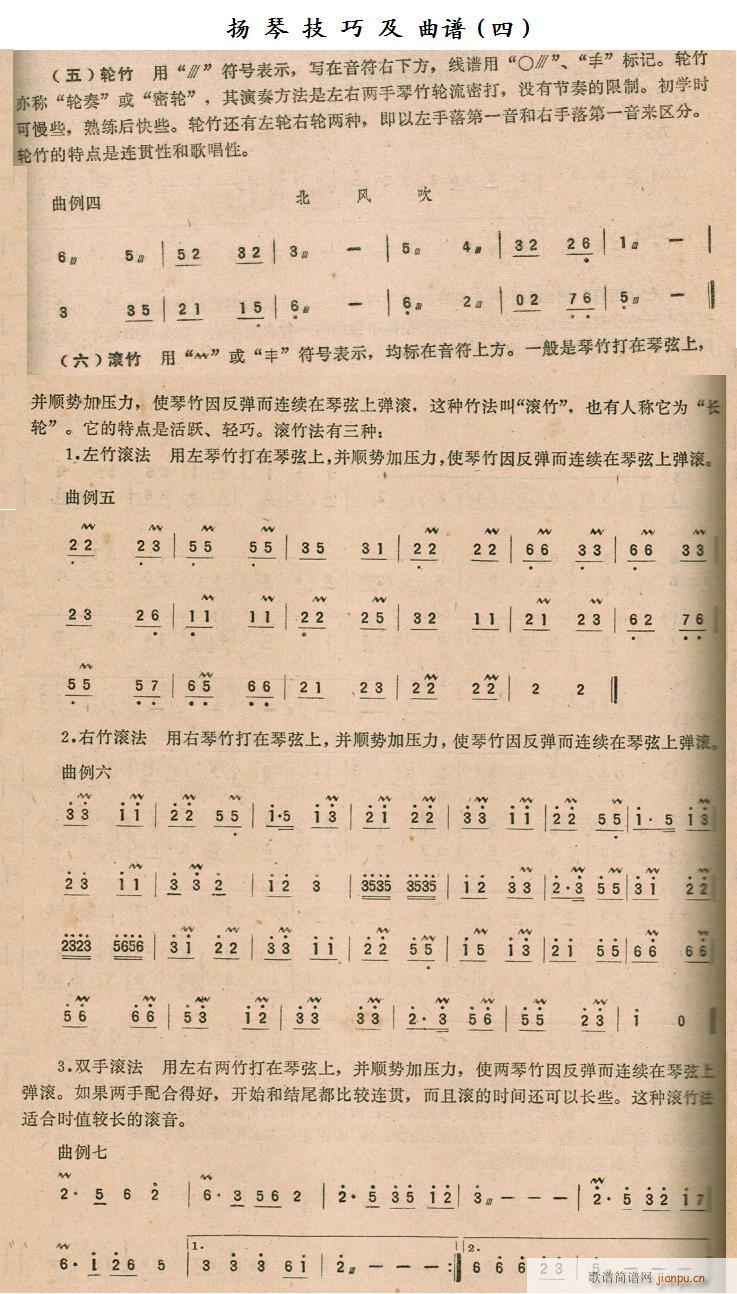 扬琴技巧及曲谱(四)
(五)轮竹 用“⫻”符号表示，写在音符右下方，线谱用“○⫻”、“丰”标记。轮竹
亦称“轮奏”或“密轮”，其演奏方法是左右两手琴竹轮流密打，没有节奏的限制。初学时
可慢些，熟练后快些。轮竹还有左轮右轮两种，即以左手落第一音和右手落第一音来区分。
轮竹的特点是连贯性和歌唱性。
曲例四 北风吹
6⫻ 5⫻ | 52 32 | 3⫻ — | 5⫻ 4⫻ | 32 26 | 1⫻ — |
3 35 | 21 15 | 6⫻ — | 6⫻ 2⫻ | 02 76 | 5⫻ — ‖
(六)滚竹 用“𝆝”或“丰”符号表示，均标在音符上方。一般是琴竹打在琴弦上，
并顺势加压力，使琴竹因反弹而连续在琴弦上弹滚，这种竹法叫“滚竹”，也有人称它为“长
轮”。它的特点是活跃、轻巧。滚竹法有三种：
1.左竹滚法 用左琴竹打在琴弦上，并顺势加压力，使琴竹因反弹而连续在琴弦上弹滚。
曲例五
22 23 | 55 55 | 35 31 | 22 22 | 66 33 | 66 33 |
23 26 | 11 11 | 22 25 | 32 11 | 21 23 | 62 76 |
55 57 | 65 66 | 21 23 | 22 22 | 2 2 ‖
2.右竹滚法 用右琴竹打在琴弦上，并顺势加压力，使琴竹因反弹而连续在琴弦上弹滚。
曲例六
33 11 | 22 55 | 1·5 13 | 21 22 | 33 11 | 22 55 | 1·5 13 |
23 11 | 33 2 | 12 3 | 3535 3535 | 12 33 | 2·3 55 | 31 22 |
2323 5656 | 31 22 | 33 11 | 22 55 | 15 13 | 21 55 | 66 66 |
56 66 | 53 12 | 33 33 | 2·3 56 | 55 23 | 1 0 ‖
3.双手滚法 用左右两竹打在琴弦上，并顺势加压力，使两琴竹因反弹而连续在琴弦上
弹滚。如果两手配合得好，开始和结尾都比较连贯，而且滚的时间还可以长些。这种滚竹法
适合时值较长的滚音。
曲例七
2· 5 6 2 | 6· 3 56 2 | 2· 5 35 12 | 3⫻ — — — | 2· 5 32 17 |
6· 1 26 5 | 1. 3 3 3 61 | 2⫻ — — — :‖ 2. 6 6 6 23 | 5 — — —
歌谱简谱网 jianpu.cn